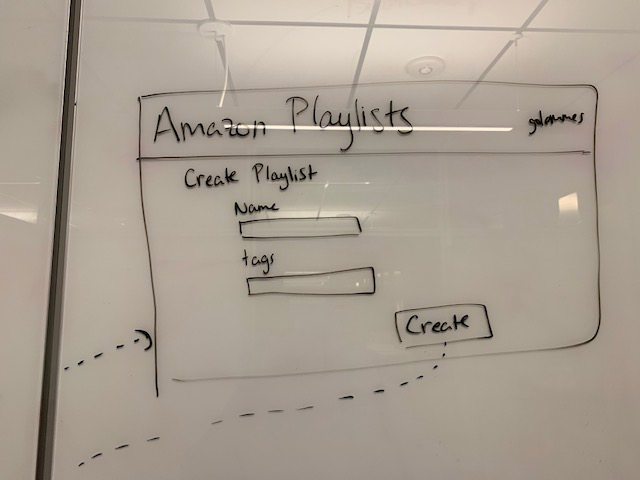 Amazon Playlists
Create Playlist
Name
tags
Create